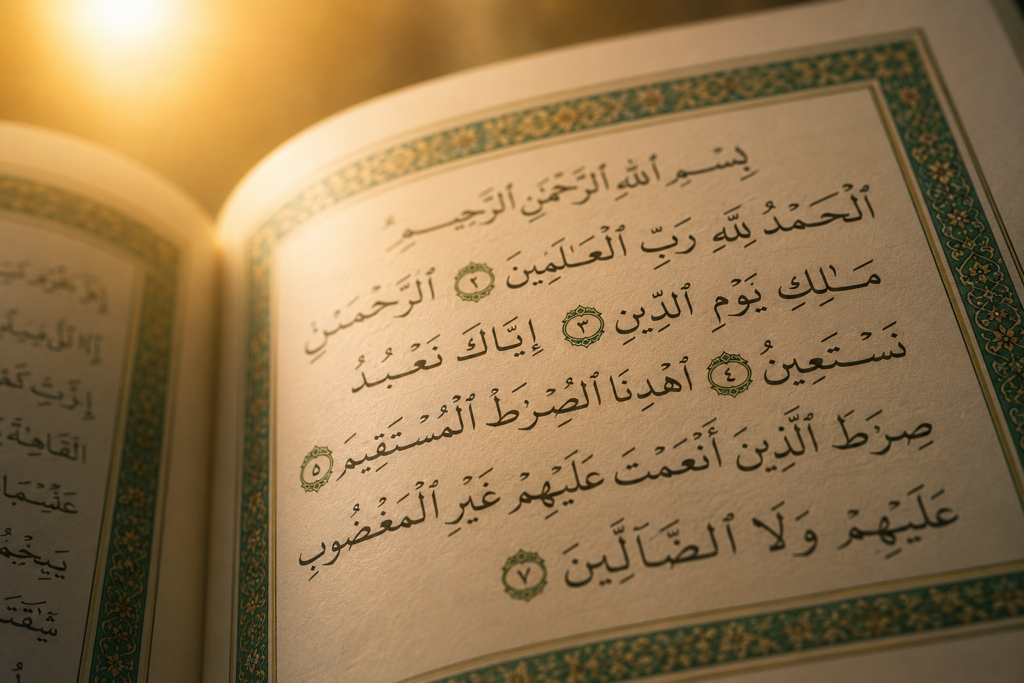 بِسْمِ ٱللهِ ٱلرَّحْمَٰنِ ٱلرَّحِيمِ
ٱلْحَمْدُ لِلَّهِ رَبِّ ٱلْعَـٰلَمِينَ ٢ ٱلرَّحْمَـٰنِ
مَـٰلِكِ يَوْمِ ٱلدِّينِ ٣ إِيَّاكَ نَعْبُدُ
نَسْتَعِينُ ٤ ٱهْدِنَا ٱلصِّرَٰطَ ٱلْمُسْتَقِيمَ ٥
صِرَٰطَ ٱلَّذِينَ أَنْعَمْتَ عَلَيْهِمْ غَيْرِ ٱلْمَغْضُوبِ
عَلَيْهِمْ وَلَا ٱلضَّآلِّينَ ٧